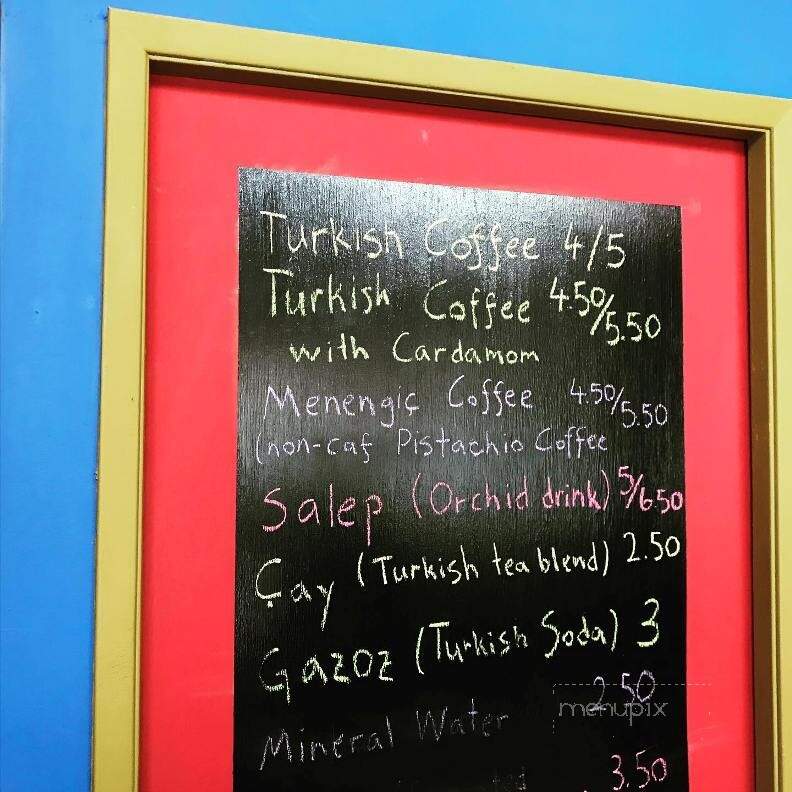 Turkish Coffee 4/5
Turkish Coffee 4.50/5.50
with Cardamom
Menengiç Coffee 4.50/5.50
(non-caf Pistachio Coffee
Salep (Orchid drink) 5/6.50
Çay (Turkish tea blend) 2.50
Gazoz (Turkish Soda) 3
Mineral Water 2.50
menupix
3.50